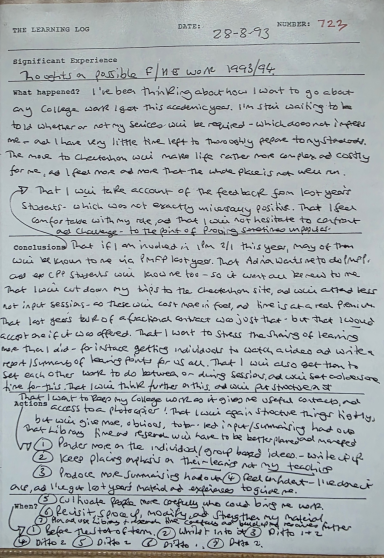 THE LEARNING LOG DATE: 28-8-93 NUMBER: 723
Significant Experience
Thoughts on possible F/HE work 1993/94
What happened? I've been thinking about how I want to go about
any College work I get this academic year. I'm still waiting to be
told whether or not my services will be required - which does not impress
me - and I have very little time left to thoroughly prepare to my standards.
The move to Cheltenham will make life rather more complex and costly
for me, and I feel more and more that the whole place is not well run.
That I will take account of the feedback from last year's
students - which was not exactly universally positive. That I feel
comfortable with my role, and that I will not hesitate to confront
and challenge - to the point of proving sometimes unpopular.
Conclusions That if I am involved in 2/1 this year, many of them
will be known to me via last year. That wants me to do
and ex CPP students will know me too - so it won't all be new to me
That I will cut down my trips to the Cheltenham site, and will attend less
not input sessions - as these will cost more in fuel, and time is at a real premium
That last year's talk of a fractional contract was just that - but that I would
accept one if it was offered. That I want to stress the sharing of learning
more than I did - for instance getting individuals to watch a video and write a
report/summary of learning points for us all. That I will also get them to
set each other work to do between or during sessions, and will set aside some
time for this. That I will think further on this, and will put structure on it
That I want to keep my College work as it gives me useful contacts, and
access to a photocopier! That I will again structure things tightly,
Actions but will give more, obvious, tutor-led input/summarising hand outs
That library time and research will have to be better planned and managed
(1) Ponder more on the individual/group based ideas - write up
(2) Keep placing emphasis on their learning not my teaching
(3) Produce more summarising hand outs (4) Feel confident - I've done it
once, and I've got last year's material and experiences to guide me.
(5) Cultivate people more carefully who could bring me work
When? (6) Revisit, space up, modify and then material
(7) further
(1) Before the start of term. (2) Whilst into it (3) Ditto 1+2
(4) Ditto 2 (5) Ditto 2 (6) Ditto 1. (7) Ditto 2.